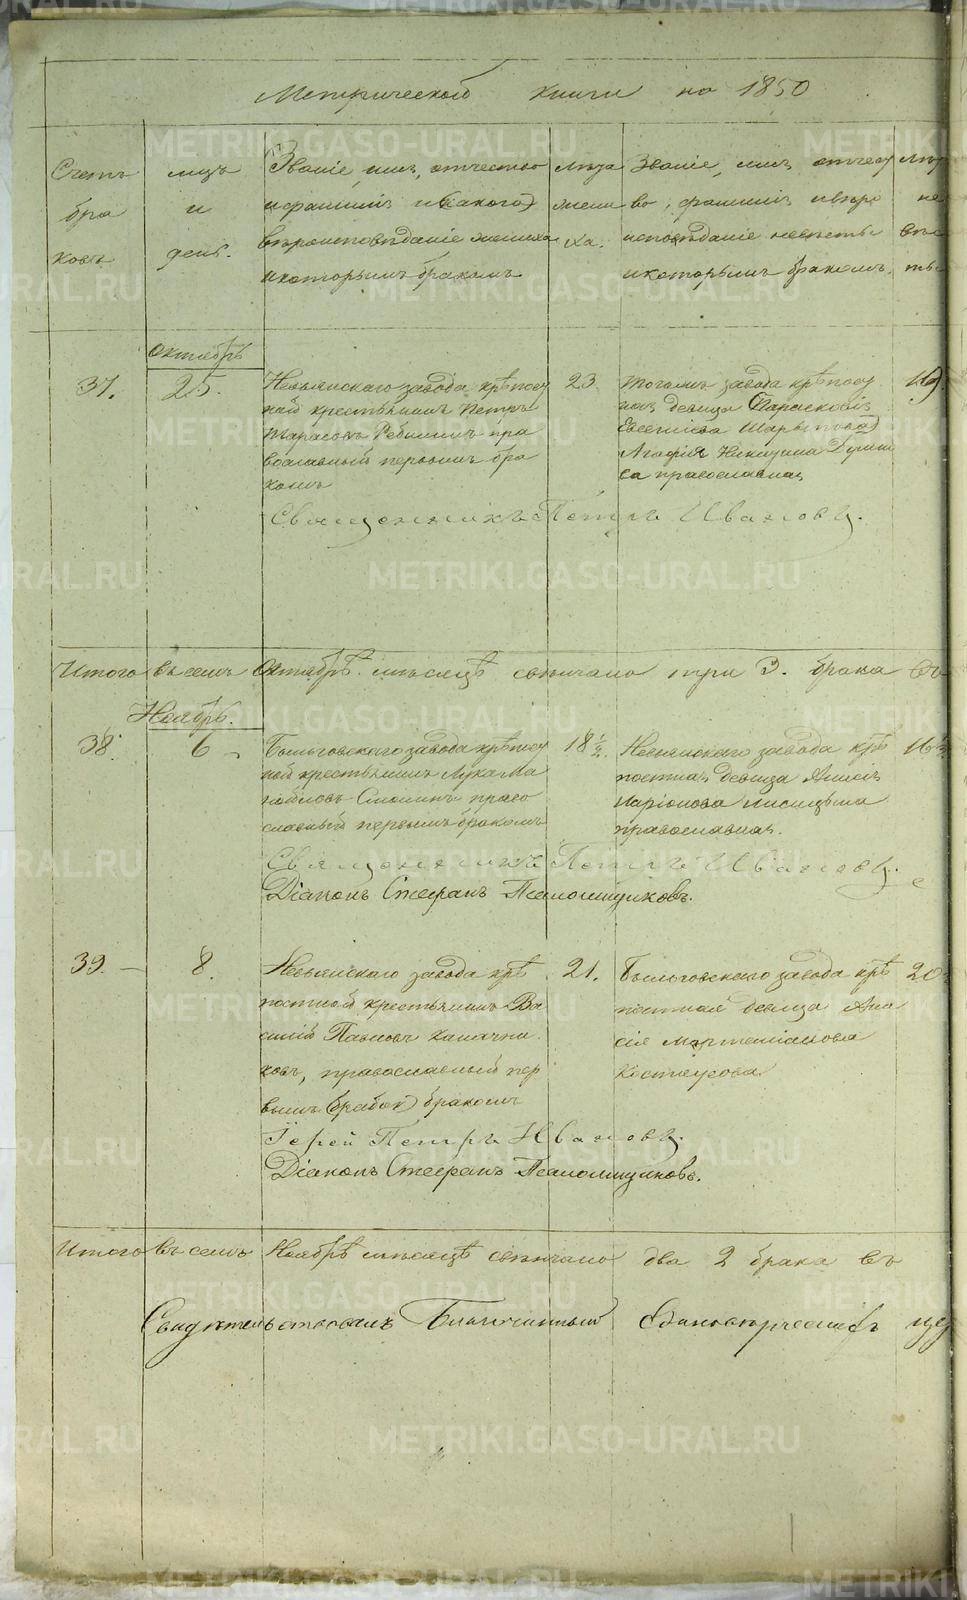 Метрической книги на 1850
Счетъ бра ковъ
мцъ и день.
Званіе, имя, отчество и фамилія и (какого) вѣроисповѣданіе жениха и которымъ бракомъ
Лѣта жени ха.
Званіе, имя, отчест во, фамилія и вѣро исповѣданіе невѣсты и которымъ бракомъ.
Лѣт не вѣс ты
Октябрь
37.
25.
Невьянскаго завода крѣпост
ной крестьянинъ Петръ
Тарасовъ Ребининъ пра
вославный первымъ бра
комъ
23.
Тогоже завода крѣпост
ная девица Парасковія
Евсегнѣева
Агафія Никитина
ва православная
19
Священникъ Петръ Ивановъ.
Итого въ семъ Октябрѣ мѣсяцѣ свѣнчано три 3. брака въ
Ноябрь.
38.
6
Быньговскаго завода крѣпост
ной крестьянинъ Лука Ма
нойловъ Смолинъ право
славный первымъ бракомъ
18 1/2.
Невьянскаго завода крѣ
постная девица Анисія
Ларіонова Лисицына
православная.
16 1/2
Священникъ Петръ Ивановъ.
Діаконъ Стефанъ Псаломщиковъ.
39.
8.
Невьянскаго завода крѣ
постной крестьянинъ Ва
силій Павловъ
ковъ, православный пер
вымъ (работ) бракомъ
21.
Быньговскаго завода крѣ
постная девица Ана
сія Мартемianова
Костоусова
20
Іерей Петръ Ивановъ.
Діаконъ Стефанъ Псаломщиковъ.
Итого въ семъ Ноябрѣ мѣсяцѣ свѣнчано два 2 брака въ
Свидѣтельствовалъ Благочинный Единовѣрческихъ цер
METRIKI.GASO-URAL.RU